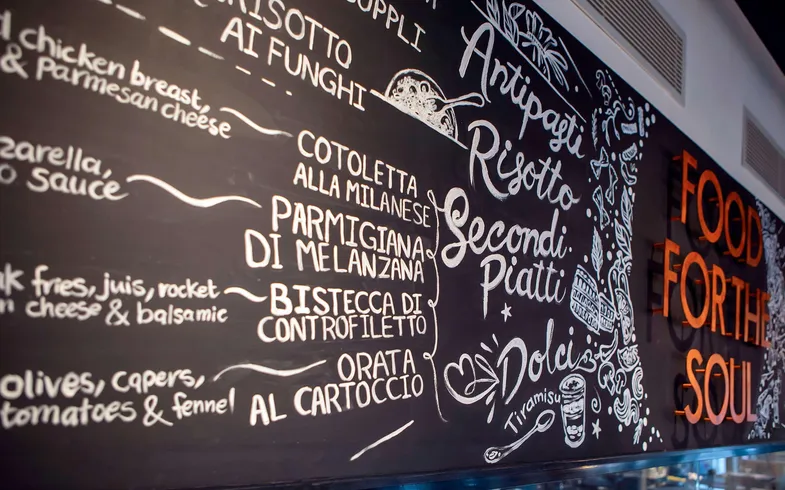 RISOTTO
AI FUNGHI
SUPPLI
chicken breast,
& Parmesan cheese
COTOLETTA
ALLA MILANESE
Sauce
PARMIGIANA
DI MELANZANA
fries, juis, rocket
cheese & balsamic
BISTECCA DI
CONTROFILETTO
olives, capers,
tomatoes & fennel
ORATA
AL CARTOCCIO
Antipasti
Risotto
Secondi
Piatti
Dolci
Tiramisu
FOOD
FOR THE
SOUL